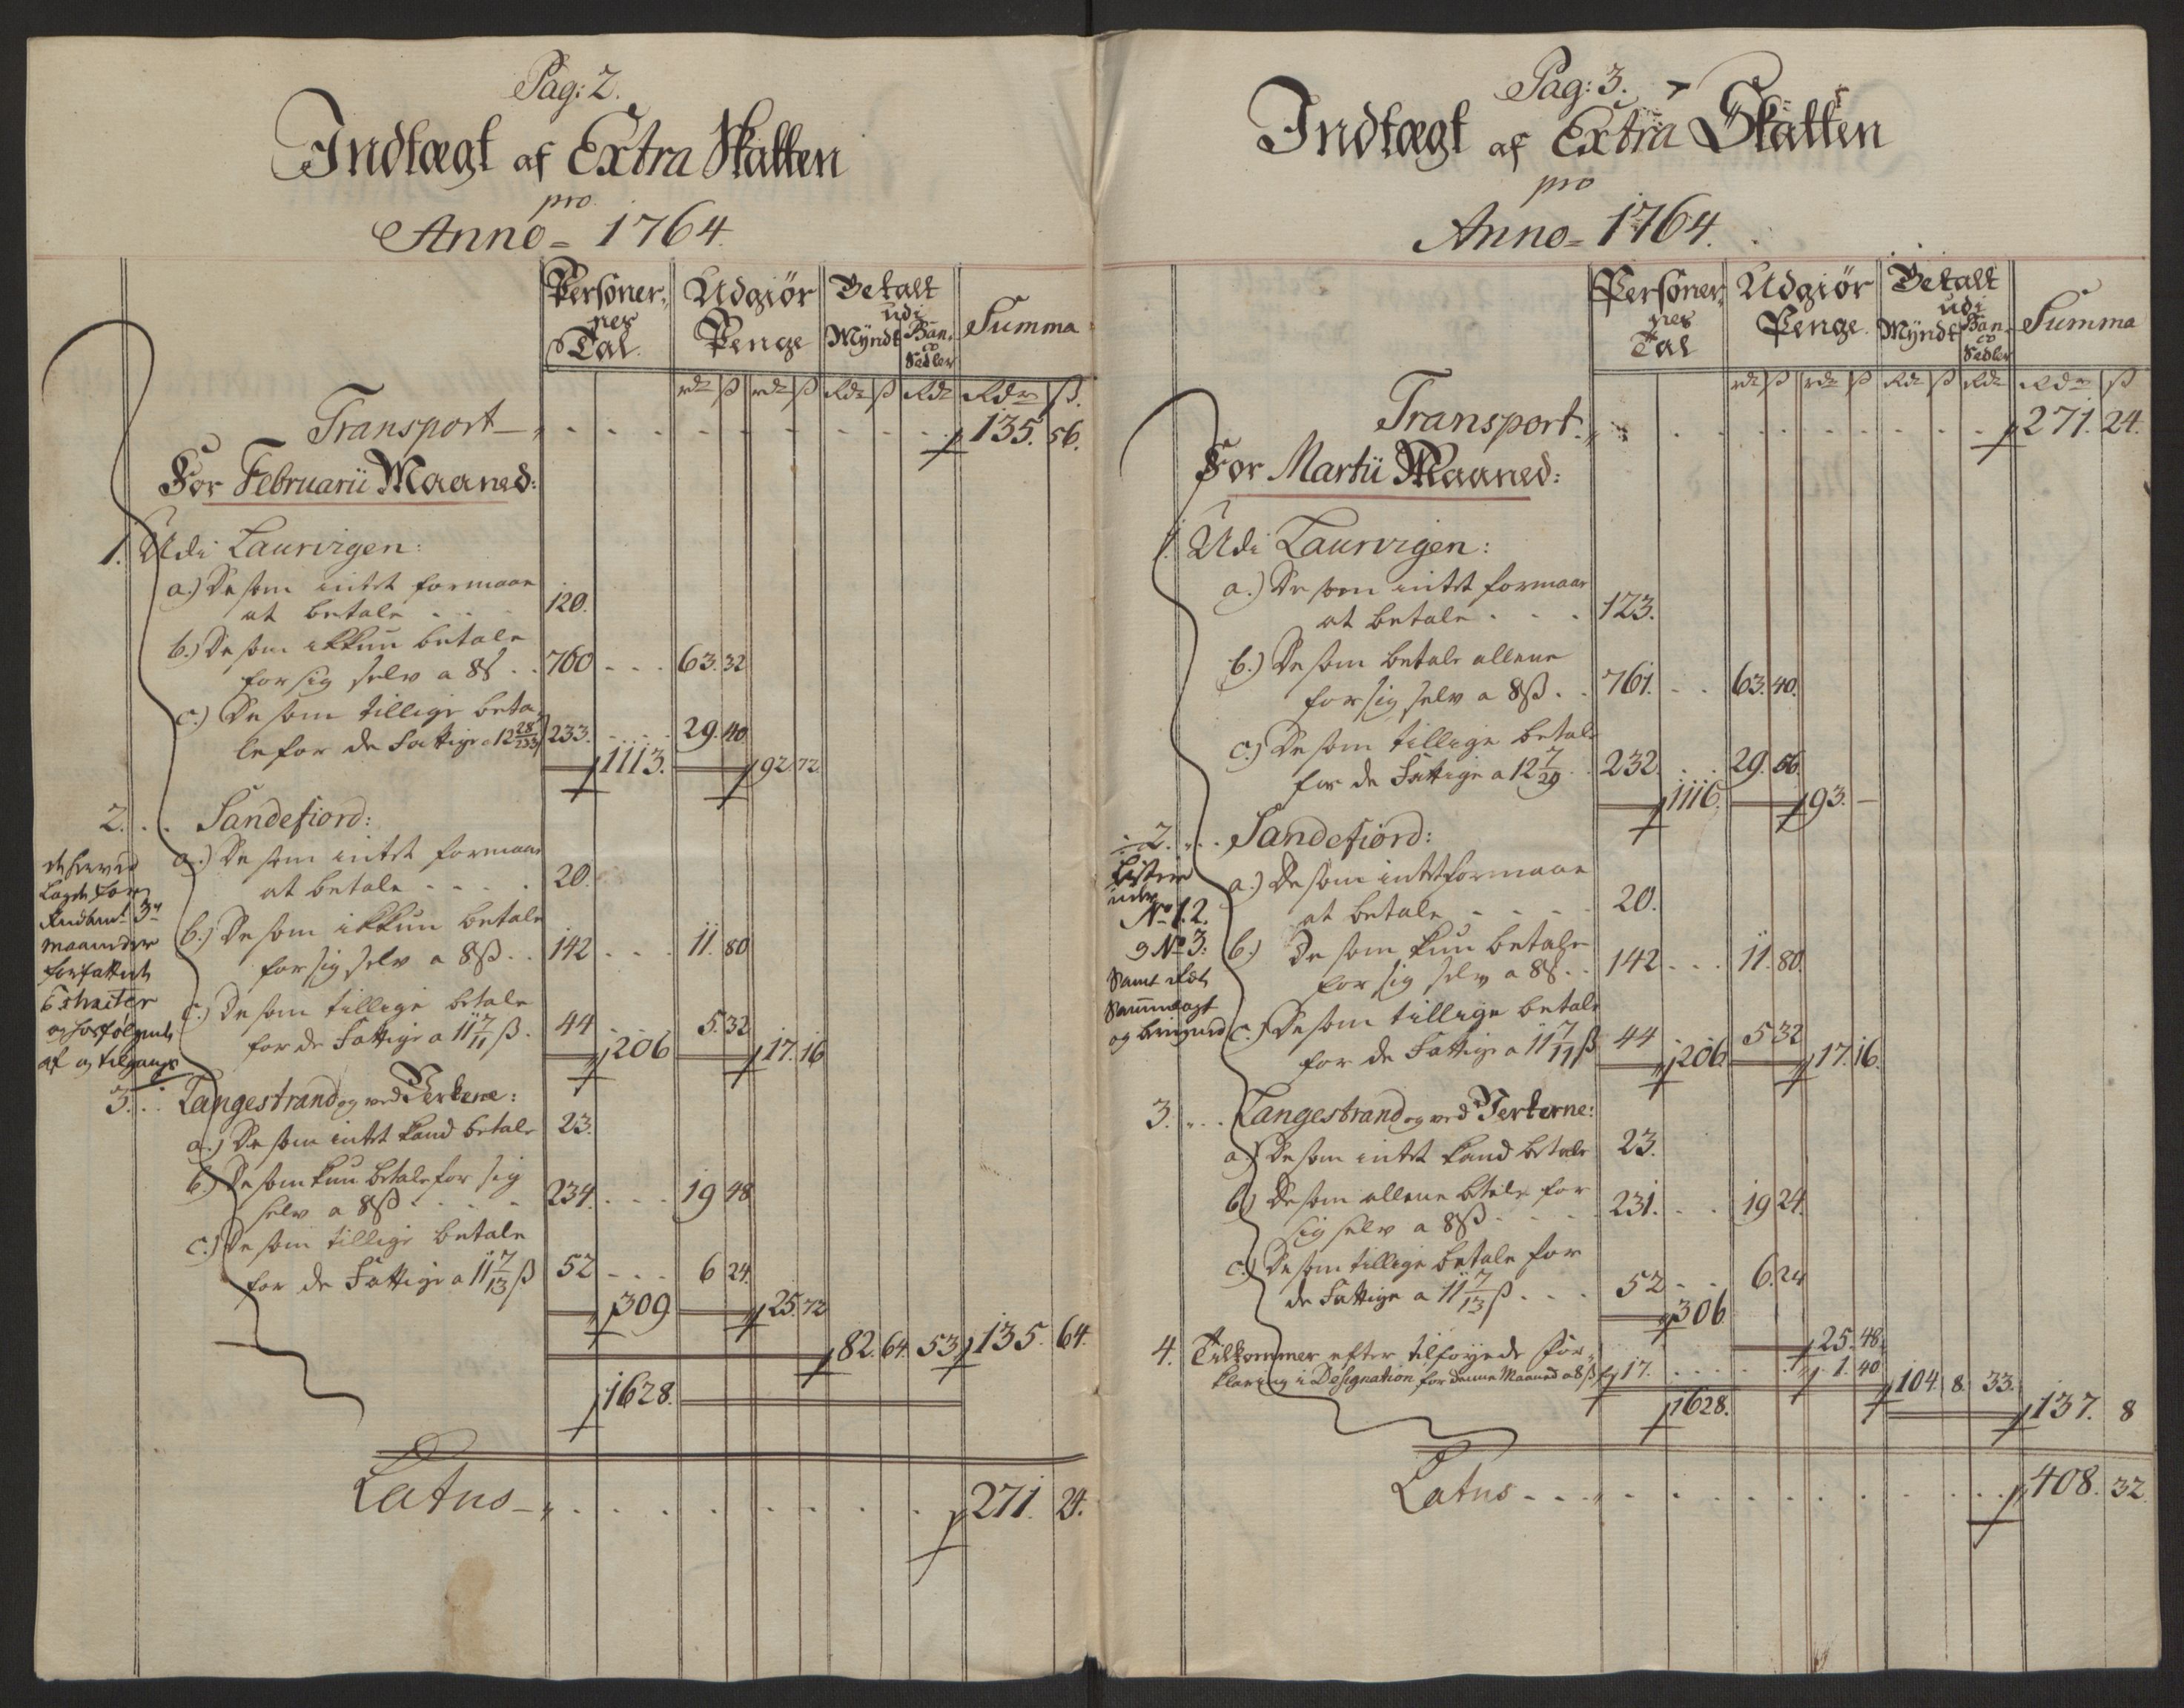 Pag: 2.
Indtægt af Extra Skatten
pro
Anno = 1764.
Personer,, Udgiør Betalt
nes udi
Tal. Penge Myndt Ban, Summa
co
Sedler
rdr ß rdr ß Rdr ß Rdr Rdr ß.
Transport 135. 56.
For Februarii Maaned:
1. Udi Laurvigen:
a.) De som intet formaar
at betale 120.
b.) De som ikkun betale
for sig selv a 8ß 760 63. 32
c.) De som tillige beta,,
le for de Fattige a 12 28/233 233. 29. 40
1113. 92. 72.
2. Sandefiord:
a.) De som intet formaar
at betale 20.
b.) De som ikkun betale
for sig selv a 8ß 142 11. 80
c.) De som tillige betale
for de Fattige a 11 7/11 ß. 44 5. 32
206 17. 16
maaneder
forfattede
Extracter
og herfølgende
af og tilgangs
3. Langestrand og ved Verkerne:
a.) De som intet kand betale 23.
b.) De som kun betale for sig
selv a 8ß 234. 19 48
c.) De som tillige betale
for de Fattige a 11 7/13 ß 52 6 24
309 25. 72
82. 64. 53 135. 64.
1628.
Latus 271. 24.
Pag: 3.
Indtægt af Extra Skatten
pro
Anno = 1764.
Personer,, Udgiør Betalt
nes udi
Tal Penge. Myndt Ban, Summa
co
Sedler
rdr ß rdr ß Rdr ß Rdr Rdr ß
Transport. 271. 24.
For Martii Maaned:
1. Udi Laurvigen:
a.) De som intet formaar
at betale 123.
b.) De som betale allene
for sig selv a 8ß 761. 63. 40.
c.) De som tillige betale
for de Fattige a 12 7/29 232. 29. 56.
1116. 93. –
2. Sandefiord:
Listerne
under
No 1. 2.
og No 3:
Samt
Sammenlagt
a.) De som intet formaar
at betale 20.
b.) De som kun betale
for sig selv a 8ß 142 11. 80.
c.) De som tillige betale
for de Fattige a 11 7/11 ß 44 5 32
206 17. 16.
3. Langestrand og ved Verkerne:
a.) De som intet kand betale 23.
b.) De som allene betale for
sig selv a 8ß 231. 19 24.
c.) De som tillige betale for
de Fattige a 11 7/13 ß 52 6. 24
306
25. 48.
4. Tilkommer efter tilføyede For,,
klaring i Designation for denne Maaned a 8ß 17. 1. 40
104. 8. 33.
1628. 137. 8
Latus 408. 32.